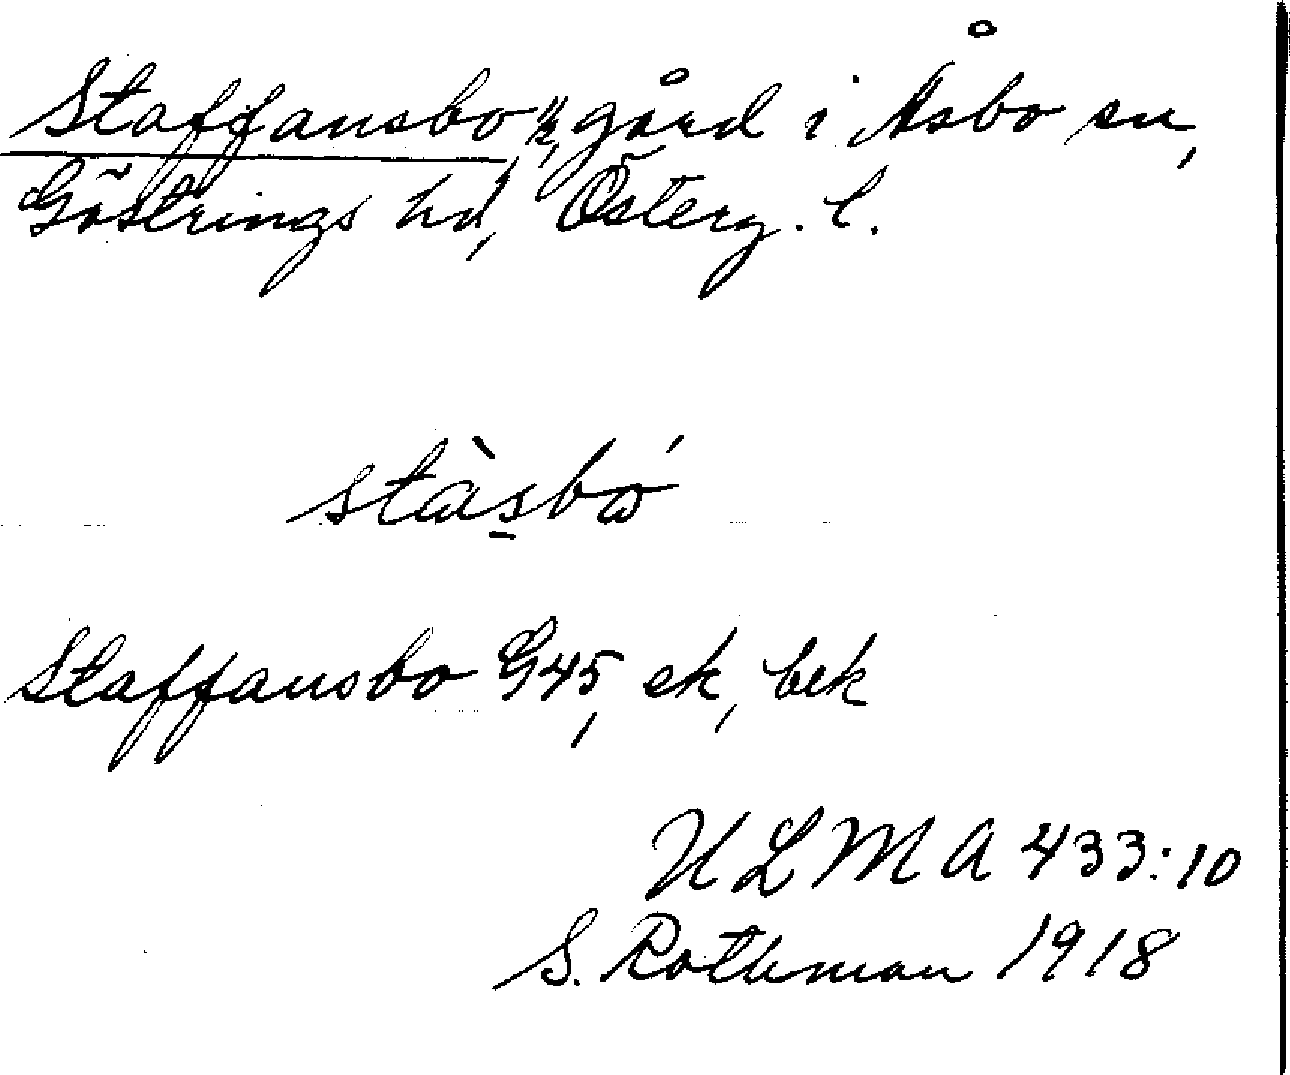 Staffansbo 1/2, gård i Åsbo sn,
Göstrings hd, Österg. l.
stàs̱bω´
Staffansbo G45, ek, bek
ULMA 433:10
S. Rothman 1918